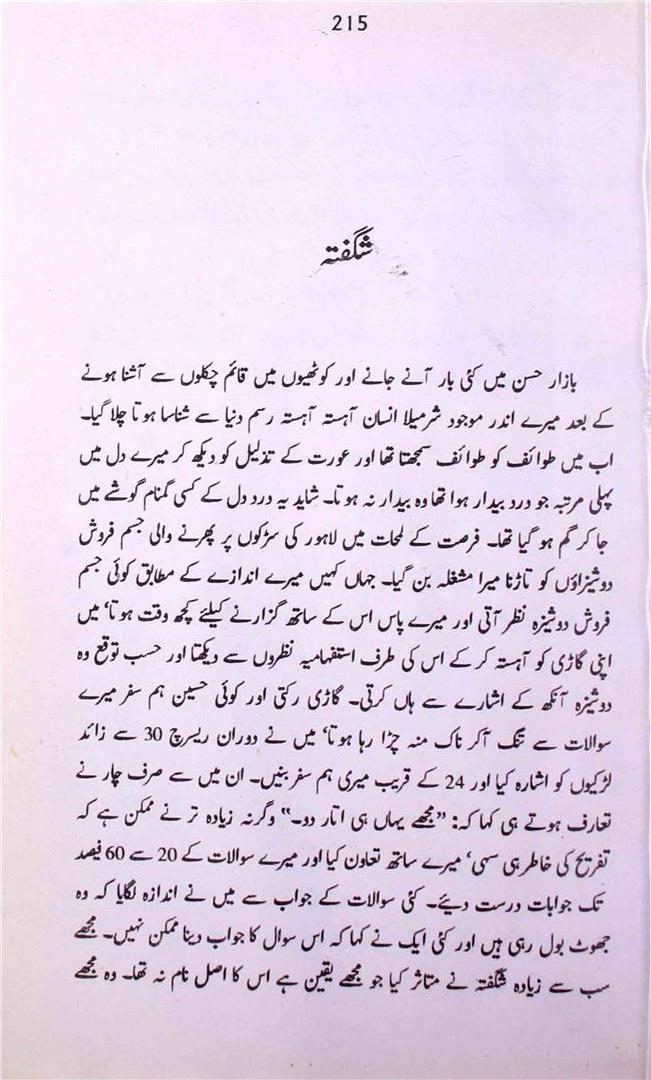 215
شگفتہ
بازار حسن میں کئی بار آنے جانے اور کوٹھیوں میں قائم چکلوں سے آشنا ہونے
کے بعد میرے اندر موجود شرمیلا انسان آہستہ آہستہ رسم دنیا سے شناسا ہوتا چلا گیا۔
اب میں طوائف کو طوائف سمجھتا تھا اور عورت کے تذلیل کو دیکھ کر میرے دل میں
پہلی مرتبہ جو درد بیدار ہوا تھا وہ بیدار نہ ہوتا۔ شاید یہ درد دل کے کسی گمنام گوشے میں
جا کر گم ہو گیا تھا۔ فرصت کے لمحات میں لاہور کی سڑکوں پر پھرنے والی جسم فروش
دوشیزاؤں کو تاڑنا میرا مشغلہ بن گیا۔ جہاں کہیں میرے اندازے کے مطابق کوئی جسم
فروش دوشیزہ نظر آتی اور میرے پاس اس کے ساتھ گزارنے کیلئے کچھ وقت ہوتا‘ میں
اپنی گاڑی کو آہستہ کر کے اس کی طرف استفہامیہ نظروں سے دیکھتا اور حسب توقع وہ
دوشیزہ آنکھ کے اشارے سے ہاں کرتی۔ گاڑی رکتی اور کوئی حسین ہم سفر میرے
سوالات سے تنگ آکر ناک منہ چڑا رہا ہوتا‘ میں نے دوران ریسرچ 30 سے زائد
لڑکیوں کو اشارہ کیا اور 24 کے قریب میری ہم سفر بنیں۔ ان میں سے صرف چار نے
تعارف ہوتے ہی کہا کہ: ”مجھے یہاں ہی اتار دو۔“ وگرنہ زیادہ تر نے ممکن ہے کہ
تفریح کی خاطر ہی سہی‘ میرے ساتھ تعاون کیا اور میرے سوالات کے 20 سے 60 فیصد
تک جوابات درست دیئے۔ کئی سوالات کے جواب سے میں نے اندازہ لگایا کہ وہ
جھوٹ بول رہی ہیں اور کئی ایک نے کہا کہ اس سوال کا جواب دینا ممکن نہیں۔ مجھے
سب سے زیادہ شگفتہ نے متاثر کیا جو مجھے یقین ہے اس کا اصل نام نہ تھا۔ وہ مجھے